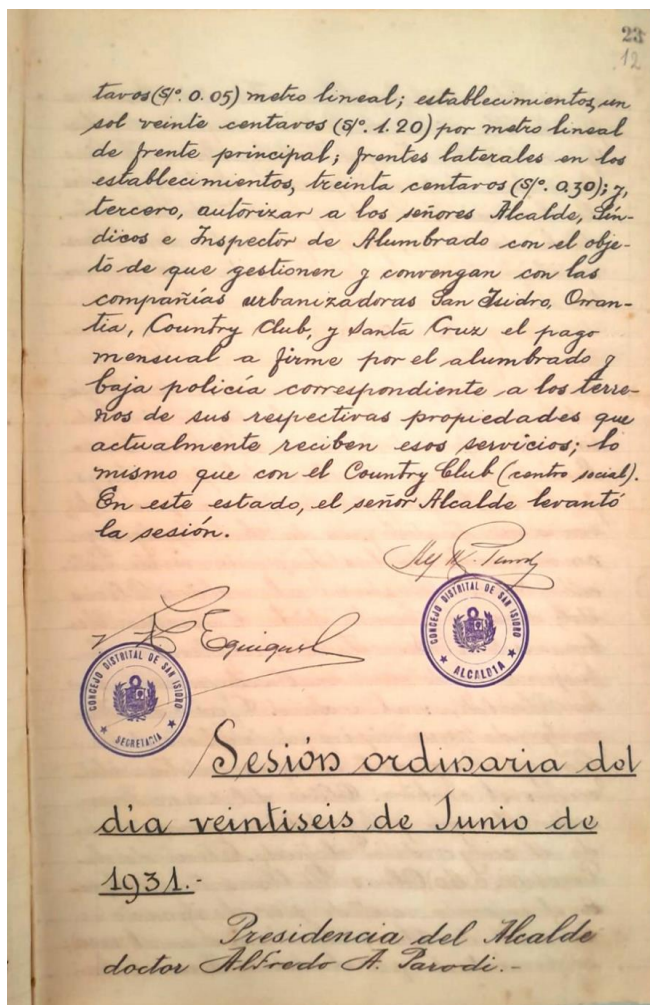 23
12
tavos (S/º. 0.05) metro lineal; establecimientos, un
sol veinte centavos (S/º. 1.20) por metro lineal
de frente principal; frentes laterales en los
establecimientos, treinta centavos (S/º. 0.30); y,
tercero, autorizar a los señores Alcalde, Sín-
dicos e Inspector de Alumbrado con el obje-
to de que gestionen y convengan con las
compañías urbanizadoras San Isidro, Orran-
tia, Country Club, y Santa Cruz el pago
mensual a firme por el alumbrado y
baja policía correspondiente a los terre-
nos de sus respectivas propiedades que
actualmente reciben esos servicios; lo
mismo que con el Country Club (centro social).
En este estado, el señor Alcalde levantó
la sesión.
CONCEJO DISTRITAL DE SAN ISIDRO
ALCALDIA
CONCEJO DISTRITAL DE SAN ISIDRO
SECRETARIA
Sesión ordinaria del
día veintiseis de Junio de
1931.-
Presidencia del Alcalde
doctor Alfredo A. Parodi.-